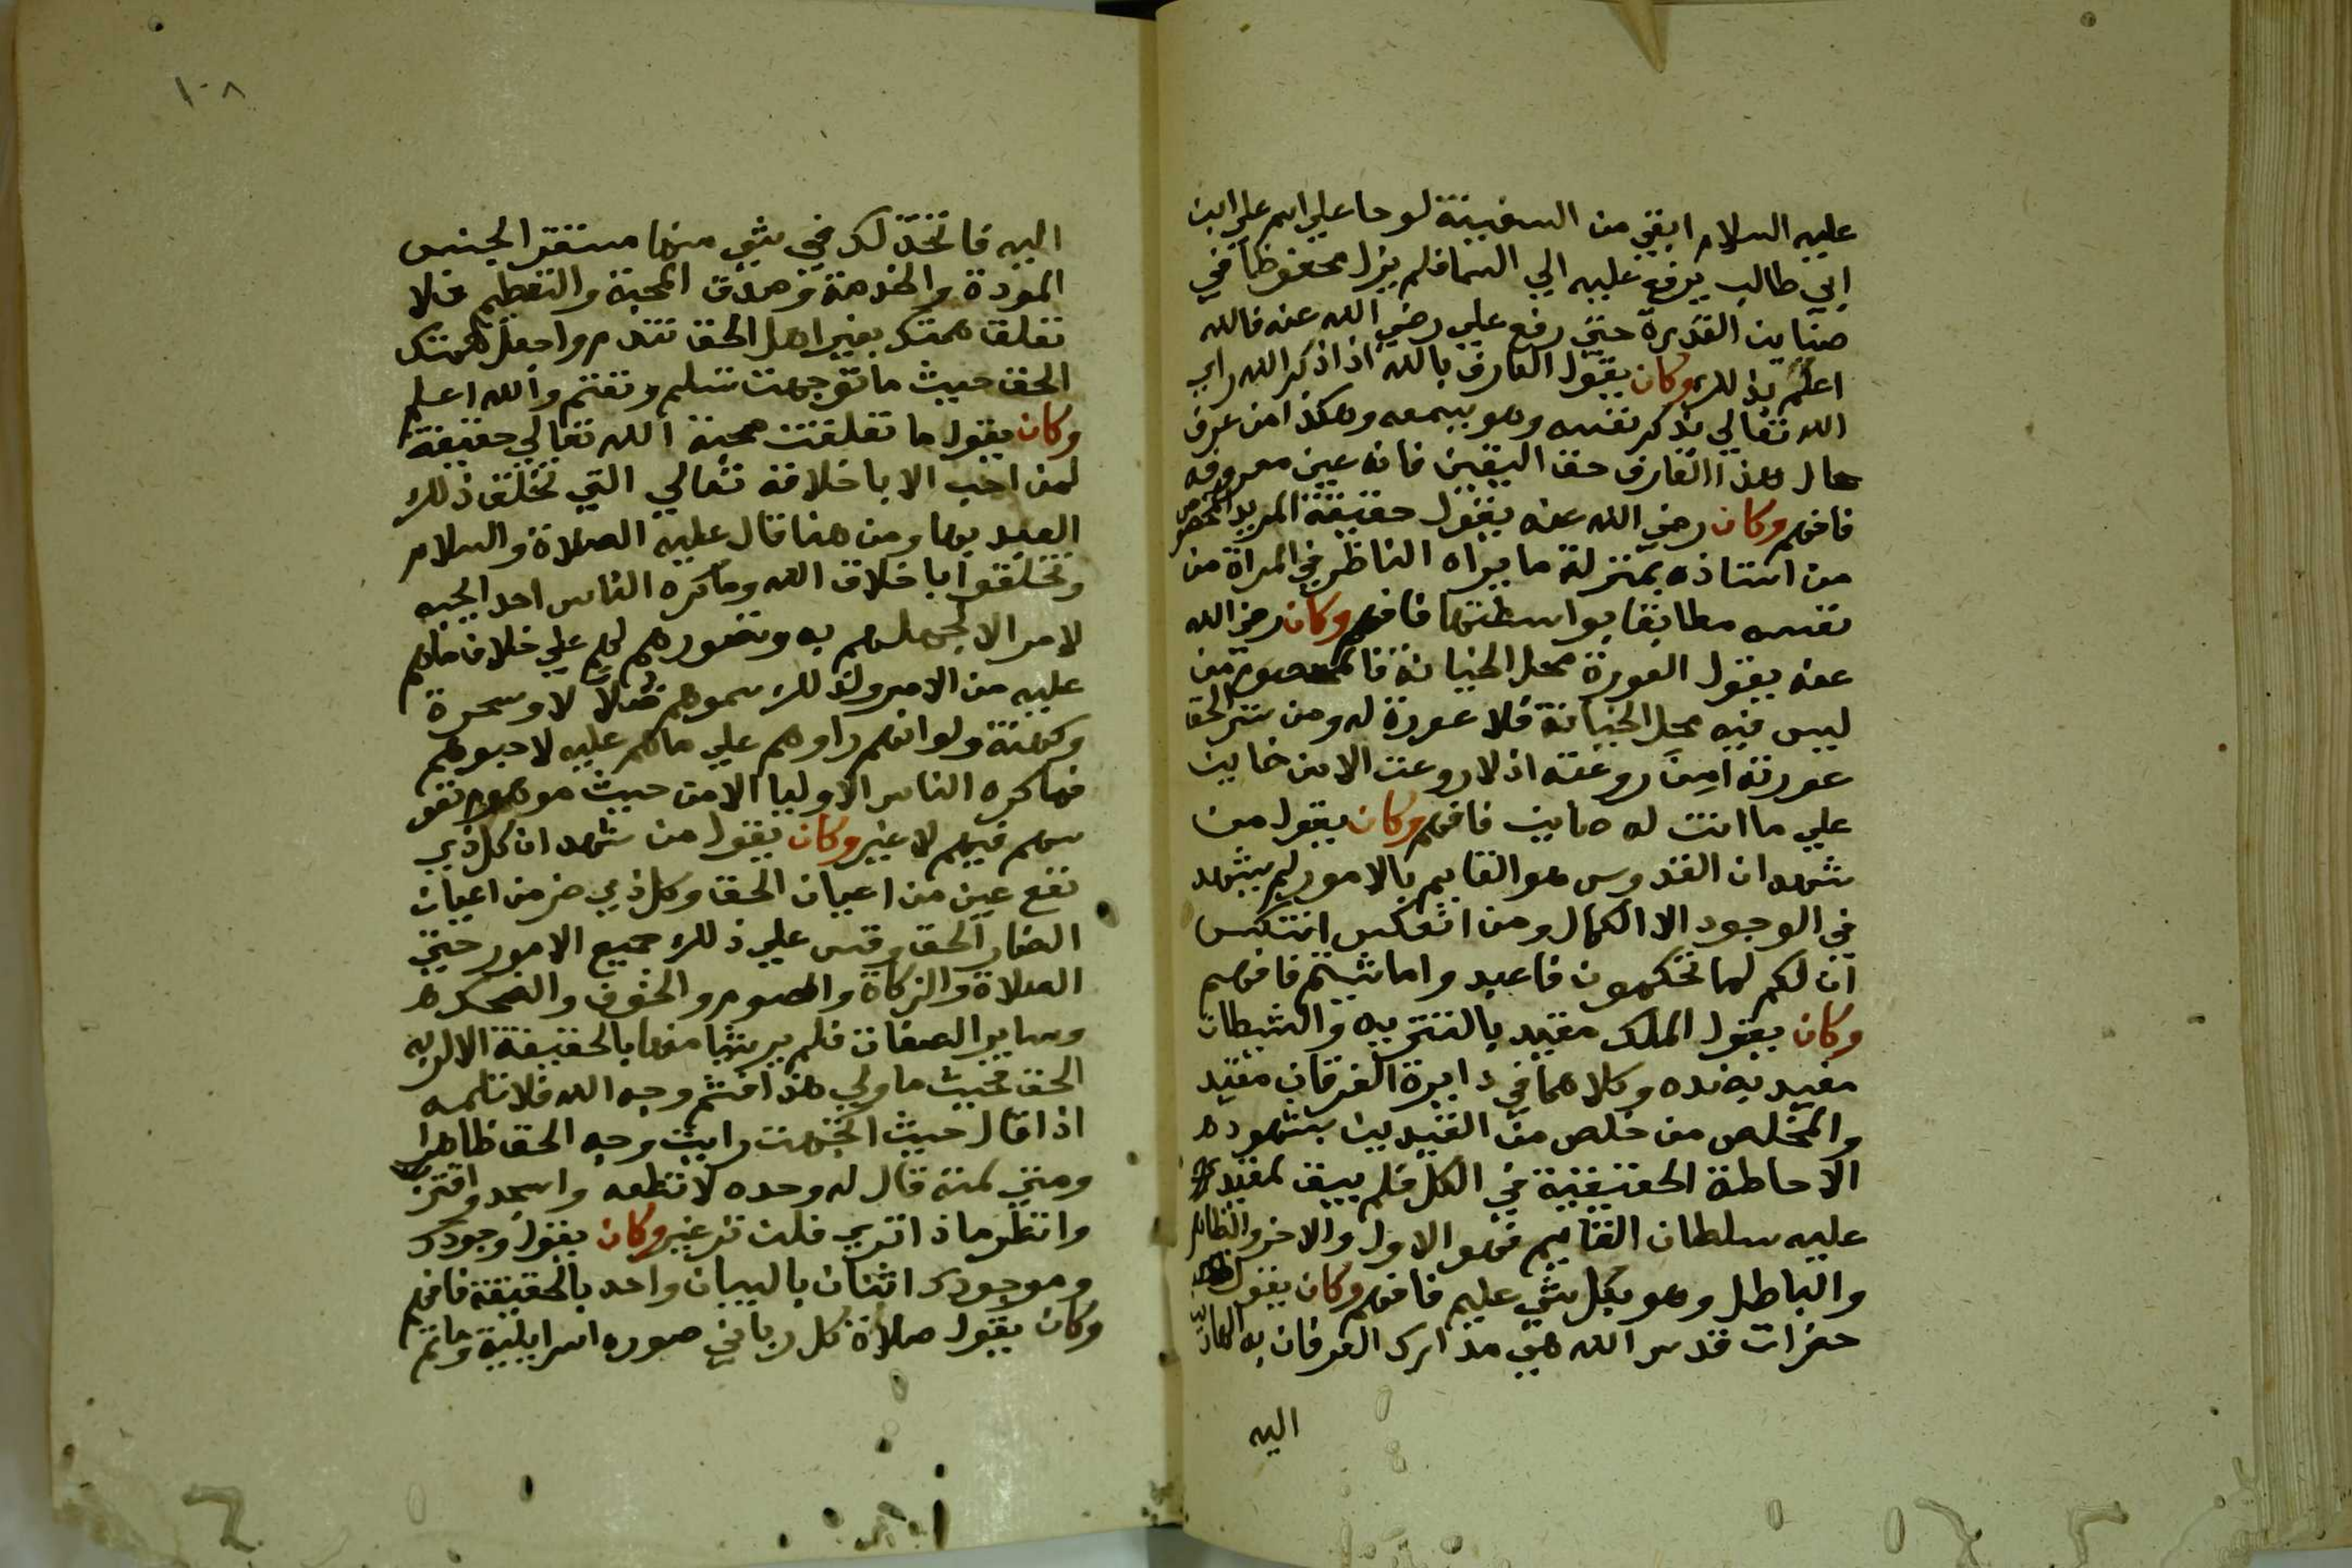 عليه السلام ابقي من السفينة لوحا علي اسم علي ابن
ابي طالب يرفع عليه الي السما فلم يزل محفوظا في
صيانة القدرة حتي رفع علي رضي الله عنه فالله
اعلم بذلك وكان يقول العارف بالله اذا ذكر الله راي
الله تعالي يذكر نفسه وهو يسمعه وهكذا من عرف
حال هذا العارف حق اليقين فانه عين معروفه
فافهم وكان رضي الله عنه يقول حقيقة المريد
من استاذه بمنزلة ما يراه الناظر في المراة من
نفسه مطابقا بواسطتها فافهم وكان رضي الله
عنه يقول العورة محل الخيانة فالمعصوم من
ليس فيه محل الخيانة فلا عورة له ومن ستر الحق
عورته امِنَ روعته اذ لا روعت الا من خاين
علي ما انت له صاين فافهم وكان يقول من
شهد ان القدوس هو القايم بالامور لم يشهد
في الوجود الا الكمال ومن انعكس انتكس
ان لكم لما تحكمون فاعبدوا ما شيتم فافهم
وكان يقول الملك مقيد بالتنزيه والشيطان
مقيد بضده وكلاهما في دايرة الفرقان مقيد
والمخلص من خلص من القيدين بشهوده
الاحاطة الحقيقية في الكل فلم يبق لمقيد
عليه سلطان القايم فهو الاول والاخر والظاهر
والباطن وهو بكل شي عليم فافهم وكان يقول
حضرات قدس الله هي مدارك العرفان به
اليه
١٠٨
اليه فاتخذ لك في شي منها مستقر الجنس
المودة والخدمة وصدق المحبة والتعظيم فلا
تعلق همتك بغير اهل الحق تندم واجعل همتك
الحق حيث ما توجهت تسلم وتغتم والله اعلم
وكان يقول ما تعلقت محبة الله تعالي حقيقة
لمن احب الا باخلاقه تعالي التي تخلق ذلك
العبد بها ومن هنا قال عليه الصلاة والسلام
وتخلقوا باخلاق الله وما كره الناس احد الجبه
لامر الا لجهلهم به وتصورهم لهم علي خلاف ما هم
عليه من الامر ولذلك سموهم ضلالا وسحرة
وكهنة ولو انهم راوهم علي ما هم عليه لاحبوهم
فما كره الناس الاوليا الا من حيث
فيهم لا غير وكان يقول من شهد ان كل ذي
نفع عين من اعيان الحق وكل ذي ضر من اعيان
الضار الحق وقس علي ذلك جميع الامور حتي
الصلاة والزكاة والصوم والخوف والضحك
وساير الصفات فلم ير شيا منها بالحقيقة الا لربه
الحق فحيث ما ولي هذا فثم وجه الله فلا تلمه
اذا قال حيث اتجهت رايت وجه الحق ظاهرا
ومتي لمته قال له وحده لا تطعه واسجد واقترب
وانظر ماذا تري فلن تر غير وكان يقول وجودك
وموجودك اثنان بالبيان واحد بالحقيقة فافهم
وكان يقول صلاة كل رباني صوره اسرايلية